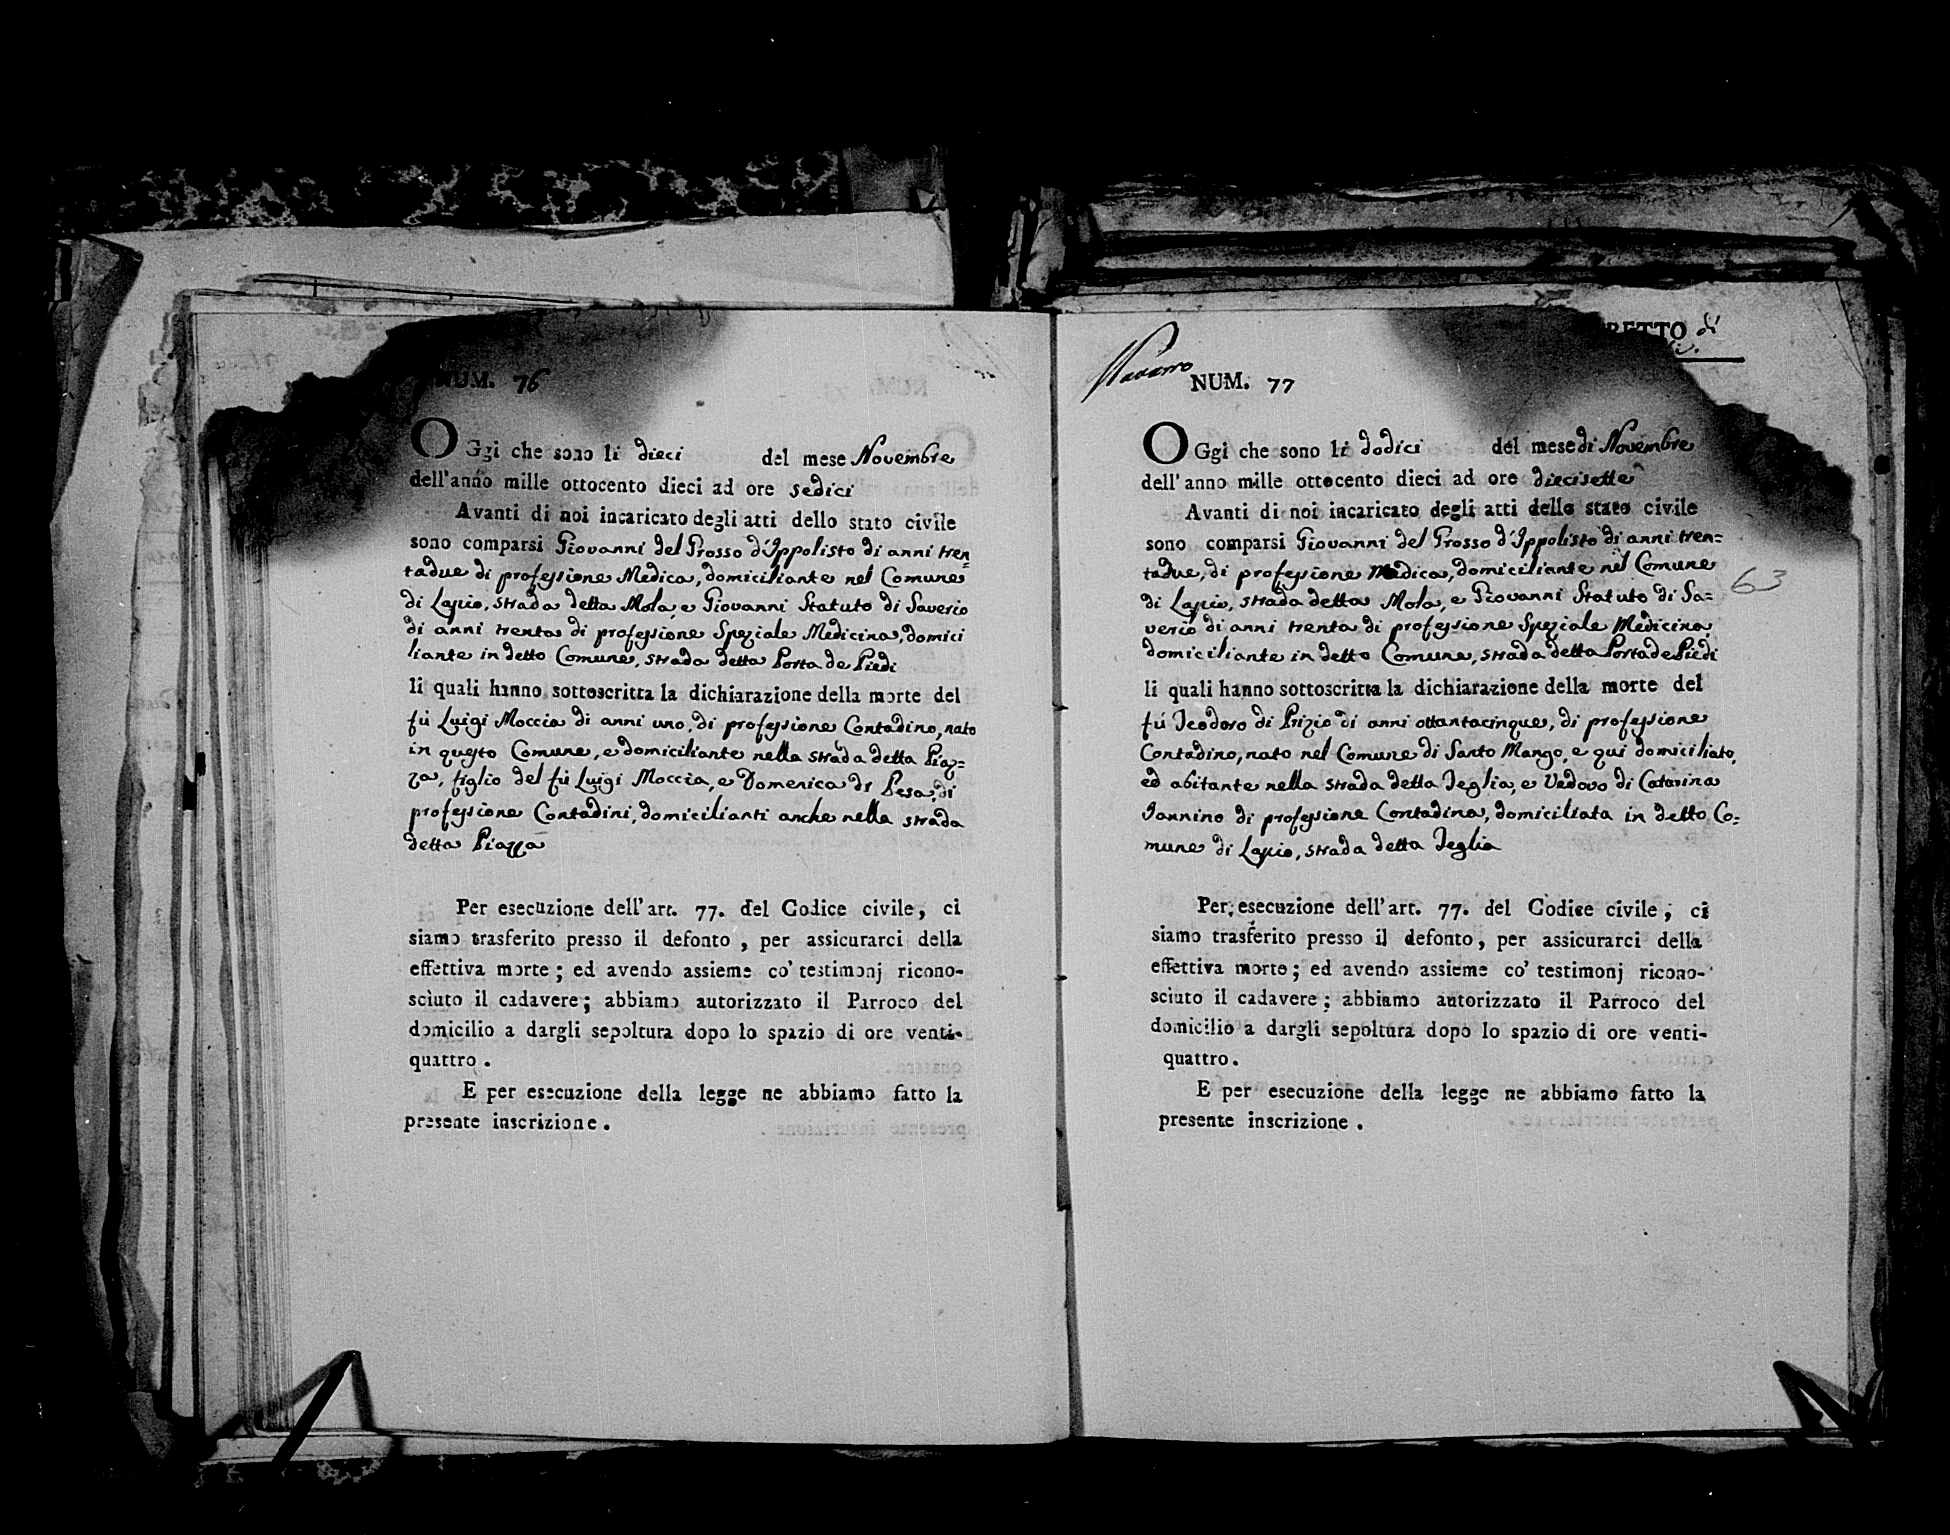 NUM. 76
OGgi che sono li dieci del mese Novembre
dell'anno mille ottocento dieci ad ore sedici
Avanti di noi incaricato degli atti dello stato civile
sono comparsi Giovanni del Grosso d'Ippolisto di anni tren=
tadue di professione Medica, domiciliante nel Comune
di Lapio, strada detta Mola, e Giovanni Statuto di Saverio
di anni trenta di professione Speziale Medicina, domici
liante in detto Comune, strada detta Porta de Piedi
li quali hanno sottoscritta la dichiarazione della morte del
fù Luigi Moccia di anni uno, di professione Contadino, nato
in questo Comune, e domiciliante nella strada detta Piaz=
za, figlio del fù Luigi Moccia, e Domenica di Pesa, di
professione Contadini, domicilianti anche nella strada
detta Piazza
Per esecuzione dell'art. 77. del Codice civile, ci
siamo trasferito presso il defonto, per assicurarci della
effettiva morte; ed avendo assieme co' testimonj ricono-
sciuto il cadavere; abbiamo autorizzato il Parroco del
domicilio a dargli sepoltura dopo lo spazio di ore venti-
quattro.
E per esecuzione della legge ne abbiamo fatto la
presente inscrizione.
RETTO di
Navarro
NUM. 77
OGgi che sono li dodici del mese di Novembre
dell'anno mille ottocento dieci ad ore diecisette
Avanti di noi incaricato degli atti dello stato civile
sono comparsi Giovanni del Grosso d'Ippolisto di anni tren=
tadue, di professione Medica, domiciliante nel Comune
di Lapio, strada detta Mola, e Giovanni Statuto di Sa=
verio di anni trenta di professione Speziale Medicina,
domiciliante in detto Comune, strada detta Porta de Piedi
li quali hanno sottoscritta la dichiarazione della morte del
fù Teodoro di Prizio di anni ottantacinque, di professione
Contadino, nato nel Comune di Santo Mango, e qui domiciliato,
ed abitante nella strada detta Teglia, e Vedovo di Catarina
Iannino di professione Contadina, domiciliata in detto Co=
mune di Lapio, strada detta Teglia
63
Per esecuzione dell'art. 77. del Codice civile, ci
siamo trasferito presso il defonto, per assicurarci della
effettiva morte; ed avendo assieme co' testimonj ricono-
sciuto il cadavere; abbiamo autorizzato il Parroco del
domicilio a dargli sepoltura dopo lo spazio di ore venti-
quattro.
E per esecuzione della legge ne abbiamo fatto la
presente inscrizione.